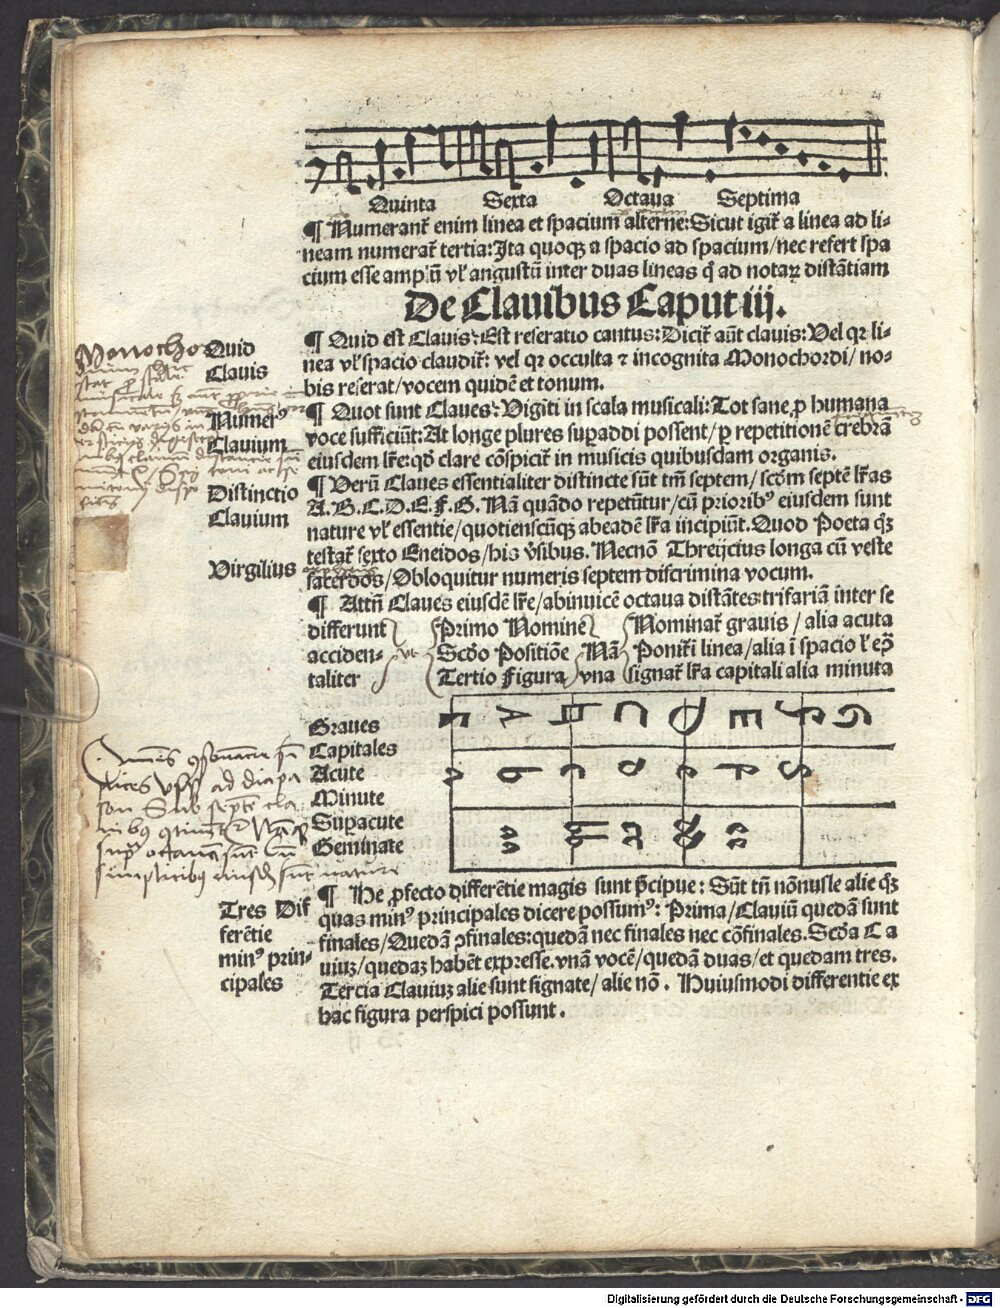 Quinta Sexta Octaua Septima
¶ Numerant᷑ enim linea et spacium alterne: Sicut igit᷑ a linea ad li-
neam numerat᷑ tertia: Ita quoqꝫ a spacio ad spacium/ nec refert spa
cium esse amp ̄u vl᷑ angustū inter duas lineas q̄ ad notaꝝ distātiam
De Clauibus Caput iij.
Quid
Clauis
¶ Quid est Clauis: Est reseratio cantus: Dicit᷑ aūt clauis: Vel qꝛ li-
nea vl᷑ spacio claudit᷑: vel qꝛ occulta ⁊ incognita Monochordi/ no-
bis reserat/ vocem quidē et tonum.
Monocho
Numerꝰ
Clauium
¶ Quot sunt Claues: Viginti in scala musicali: Tot sane ꝓ humana
voce sufficiūt: At longe plures suꝑaddi possent/ ꝑ repetitionē crebrā
eiusdem lr̄e: qd̄ clare cōspicit᷑ in musicis quibusdam organis.
Distinctio
Clauium
¶ Verū Claues essentialiter distincte sūt tm̄ septem/ scd̄m septē lr̄as
A. B. C. D. E. F. G. Nā quādo repetūtur/ cū prioribꝰ eiusdem sunt
nature vl᷑ essentie/ quotienscūqꝫ ab eadē lr̄a incipiūt. Quod Poeta q̄ꝫ
testat᷑ sexto Eneidos/ his v̄sibus. Necnō Threijcius longa cū veste
Virgilius
sacerdos/ Obloquitur numeris septem discrimina vocum.
¶ Attn̄ Claues eiusdē lr̄e/ abinuicē octaua distātes trifariā inter se
differunt Primo Nomine Nominat᷑ grauis/ alia acuta
acciden- vt Scd̄o Positiōe Nā Ponit᷑ ī linea/ alia ī spacio
taliter Tertio Figura vna signat᷑ lr̄a capitali alia minuta
Graues
Capitales
Γ A B C D E F G
Acute
Minute
a b c d e f g
Suꝑacute
Geminate
aa bb cc dd ee
¶ He ꝓfecto differētie magis sunt p̄cipue: Sūt tn̄ nōnulle alie q̄ꝫ
quas minꝰ principales dicere possumꝰ: Prima/ Clauiū quedā sunt
Tres Dif
ferētie
minꝰ prin-
cipales
finales/ Quedā ꝯfinales: quedā nec finales nec cōfinales. Scd̄a Cla
uiuꝫ/ quedaꝫ habēt expresse. vnā vocē/ quedā duas/ et quedam tres.
Tercia Clauiuꝫ alie sunt signate/ alie nō. Huiusmodi differentie ex
hac figura perspici possunt.
Digitalisierung gefördert durch die Deutsche Forschungsgemeinschaft - DFG